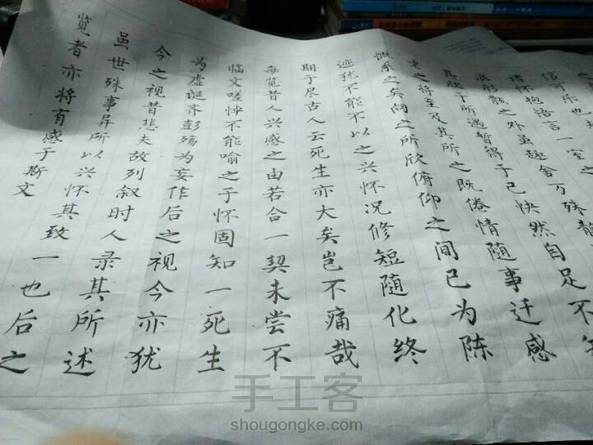 信可乐也夫
诸怀抱悟言一室之
浪形骸之外虽趣舍万殊静
其欣于所遇暂得于己快然自足不知
老之将至及其所之既倦情随事迁感
慨系之矣向之所欣俯仰之间已为陈
迹犹不能不以之兴怀况修短随化终
期于尽古人云死生亦大矣岂不痛哉
每览昔人兴感之由若合一契未尝不
临文嗟悼不能喻之于怀固知一死生
为虚诞齐彭殇为妄作后之视今亦犹
今之视昔悲夫故列叙时人录其所述
虽世殊事异所以兴怀其致一也后之
览者亦将有感于斯文
手工客
shougongke.com